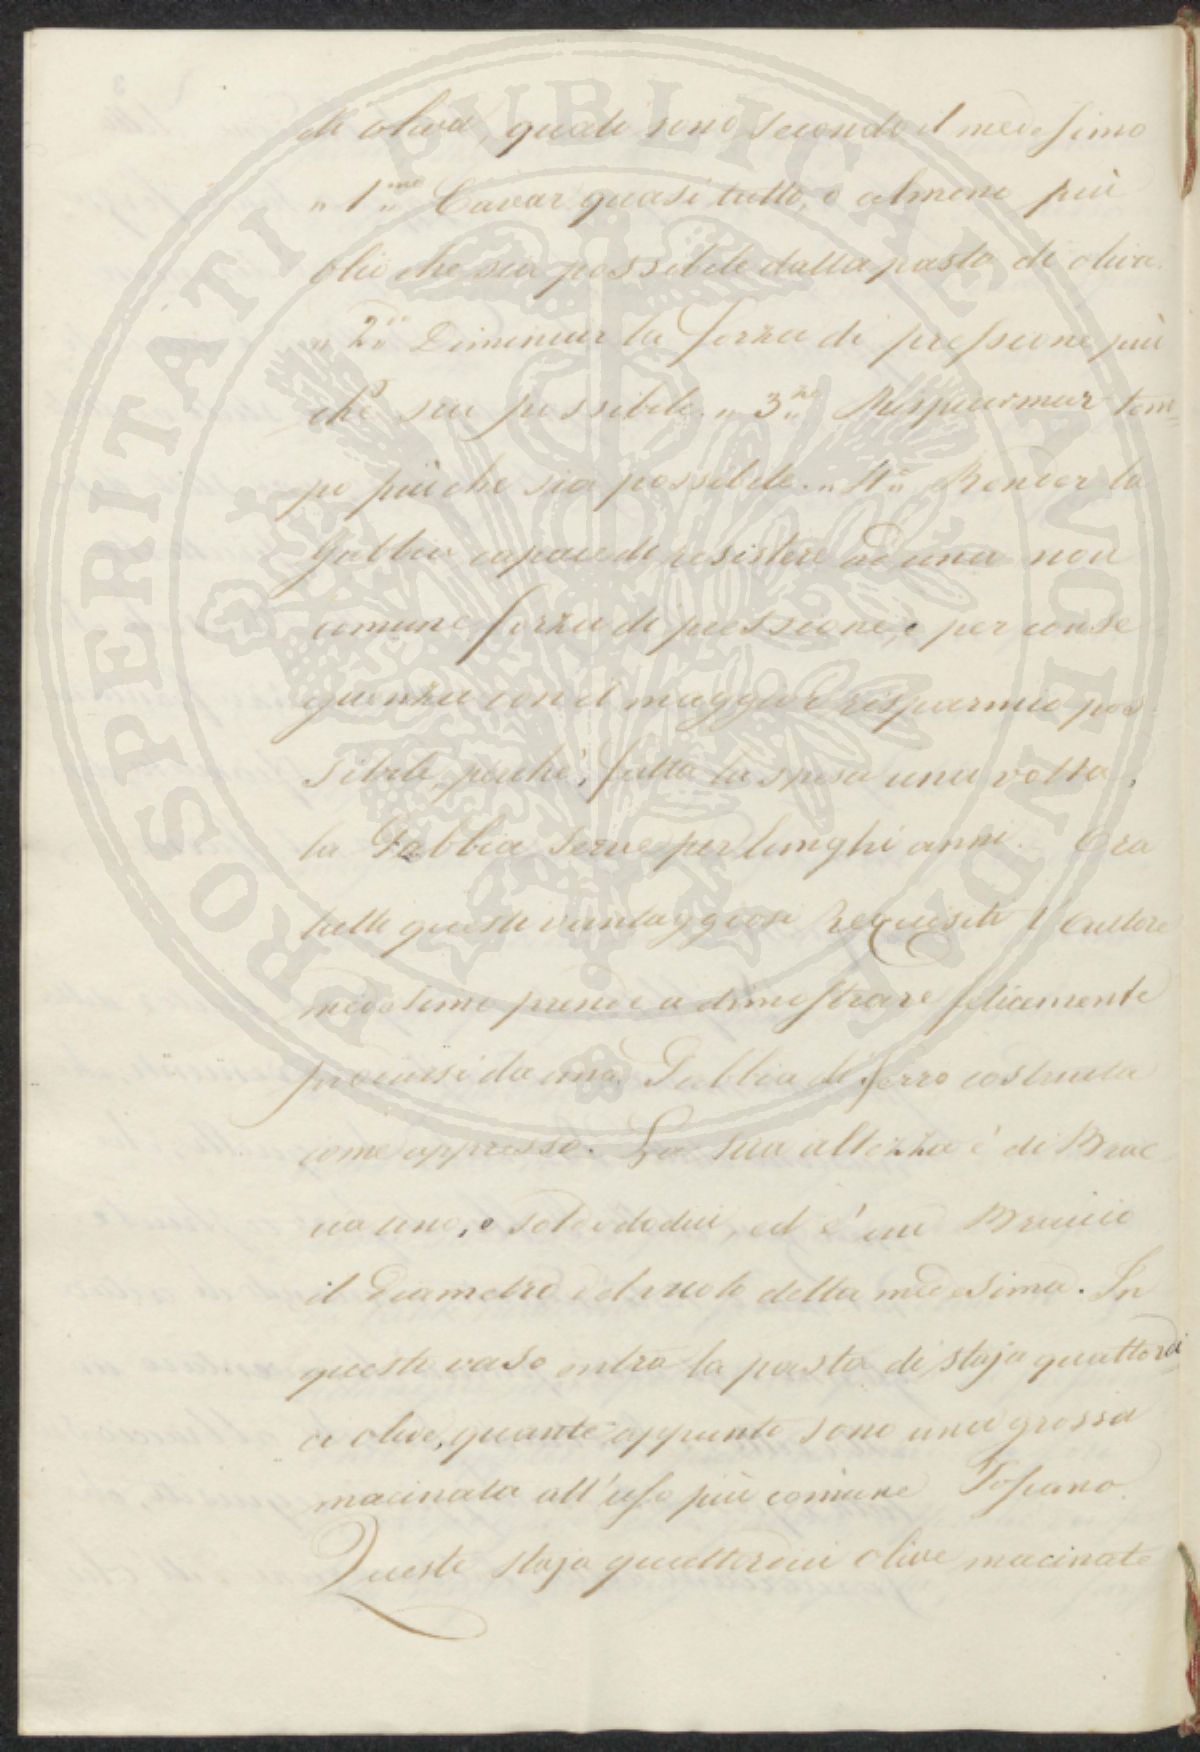 di oliva, quali sono secondo il medesimo
„ 1.mo Cavar quasi tutto, o almeno più
olio che sia possibile dalla pasta di oliva.
„ 2.o Diminuir la forza di pressione più
che sia possibile. „ 3.zo Risparmiar tem=
po più che sia possibile. „ 4.o Render la
Gabbia capace di resistere ad una non
comune forza di pressione, e per conse
guenza con il maggior risparmio pos
sibile, perché, fatta la spesa una volta,
la Gabbia serve per lunghi anni. Ora
tutti questi vantaggiosi requisiti l'Autore
medesimo prende a dimostrare felicemente
procursi da una Gabbia di ferro costruita
come appresso. La sua altezza è di Brac
cia uno, e soldi dodici, ed è un Braccio
il Diametro del vuoto della medesima. In
questo vaso entra la pasta di staja quattordi
ci olive, quante appunto sono una grossa
macinata all'uso più comune Toscano.
Queste staja quattordici olive macinate
PROSPERITATI PVBLICAE AVGENDAE